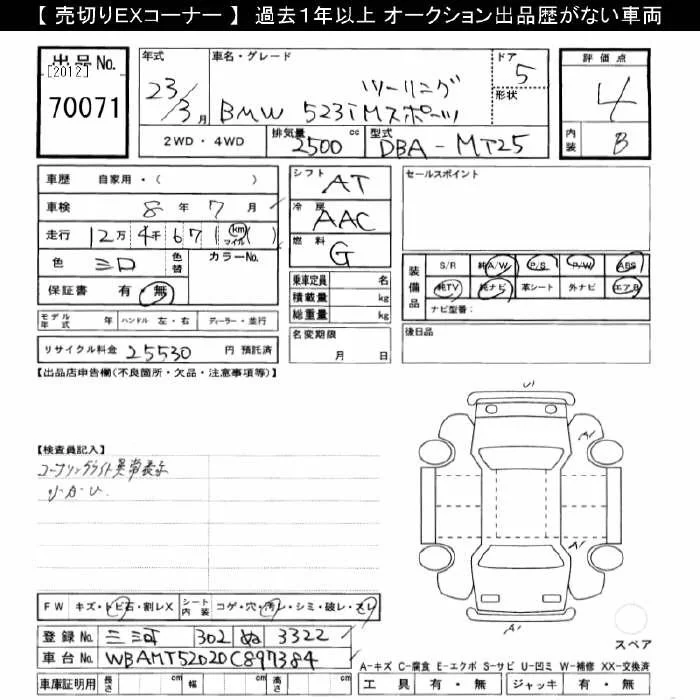 【 売切りEXコーナー 】 過去1年以上 オークション出品歴がない車両
出品No.
[2012]
70071
年式
23/3月
車名・グレード
ツーリング
BMW 523i Mスポーツ
ドア
5
形状
評価点
4
内装
B
2WD・4WD
排気量
2500 cc
型式
DBA-MT25
車歴 自家用・( )
車検 8年 7月
走行 12万 4千 67 (km マイル)
色 シロ 色替 カラーNo.
保証書 有・無
モデル年式 年 ハンドル 左・右 ディーラー・並行
リサイクル料金 25530 円 預託済
シフト AT
冷房 AAC
燃料 G
乗車定員 名
積載量 kg
総重量 kg
名変期限
月 日
セールスポイント
装備品
S/R 純A/W P/S P/W ABS
純TV 純ナビ 革シート 外ナビ エアB
ナビ型番:
後日品
【出品店申告欄(不良箇所・欠品・注意事項等)】
【検査員記入】
コーナリングライト異常表示
FW キズ・トビ石・割レX シート内装 コゲ・穴・汚レ・シミ・破レ・スレ
登録No. 三河 302 ぬ 3322
車台No. WBAMT52020C897384
車庫証明用 長さ cm 幅 cm 高さ cm
U1
A1
A1
A1
スペア
A-キズ C-腐食 E-エクボ S-サビ U-凹ミ W-補修 XX-交換済
工具 有・無 ジャッキ 有・無